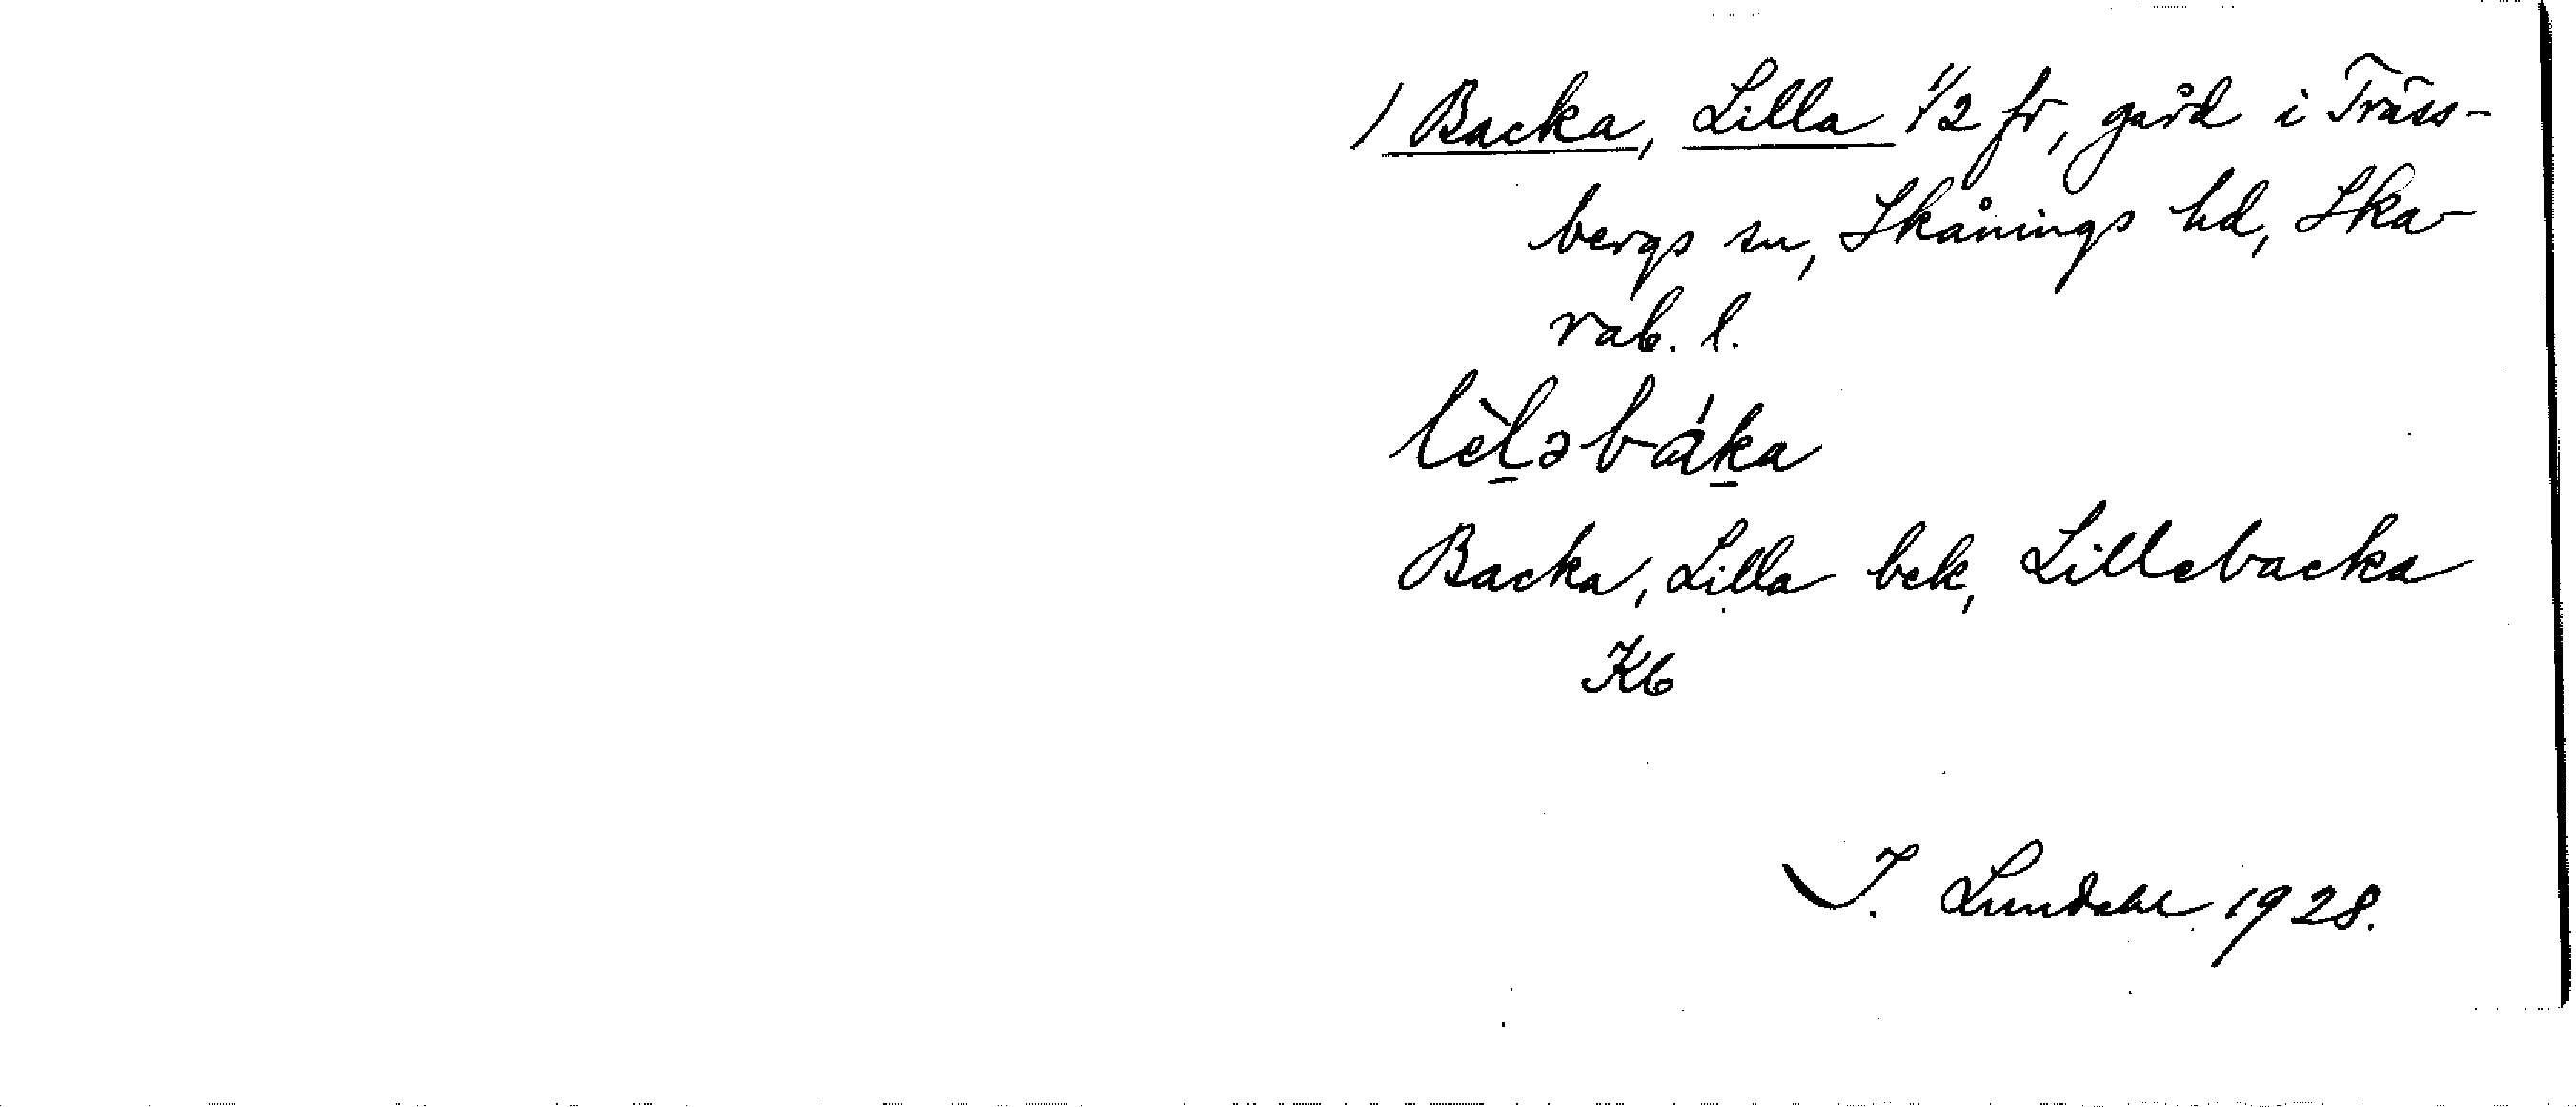 ) Backa, Lilla 1/2 fr, gård i Träss-
bergs sn, Skånings hd, Ska-
rab. l.
lèl̠əbák̠a
Backa, Lilla bek, Lillebacka
Kb
I. Lundahl 1928.